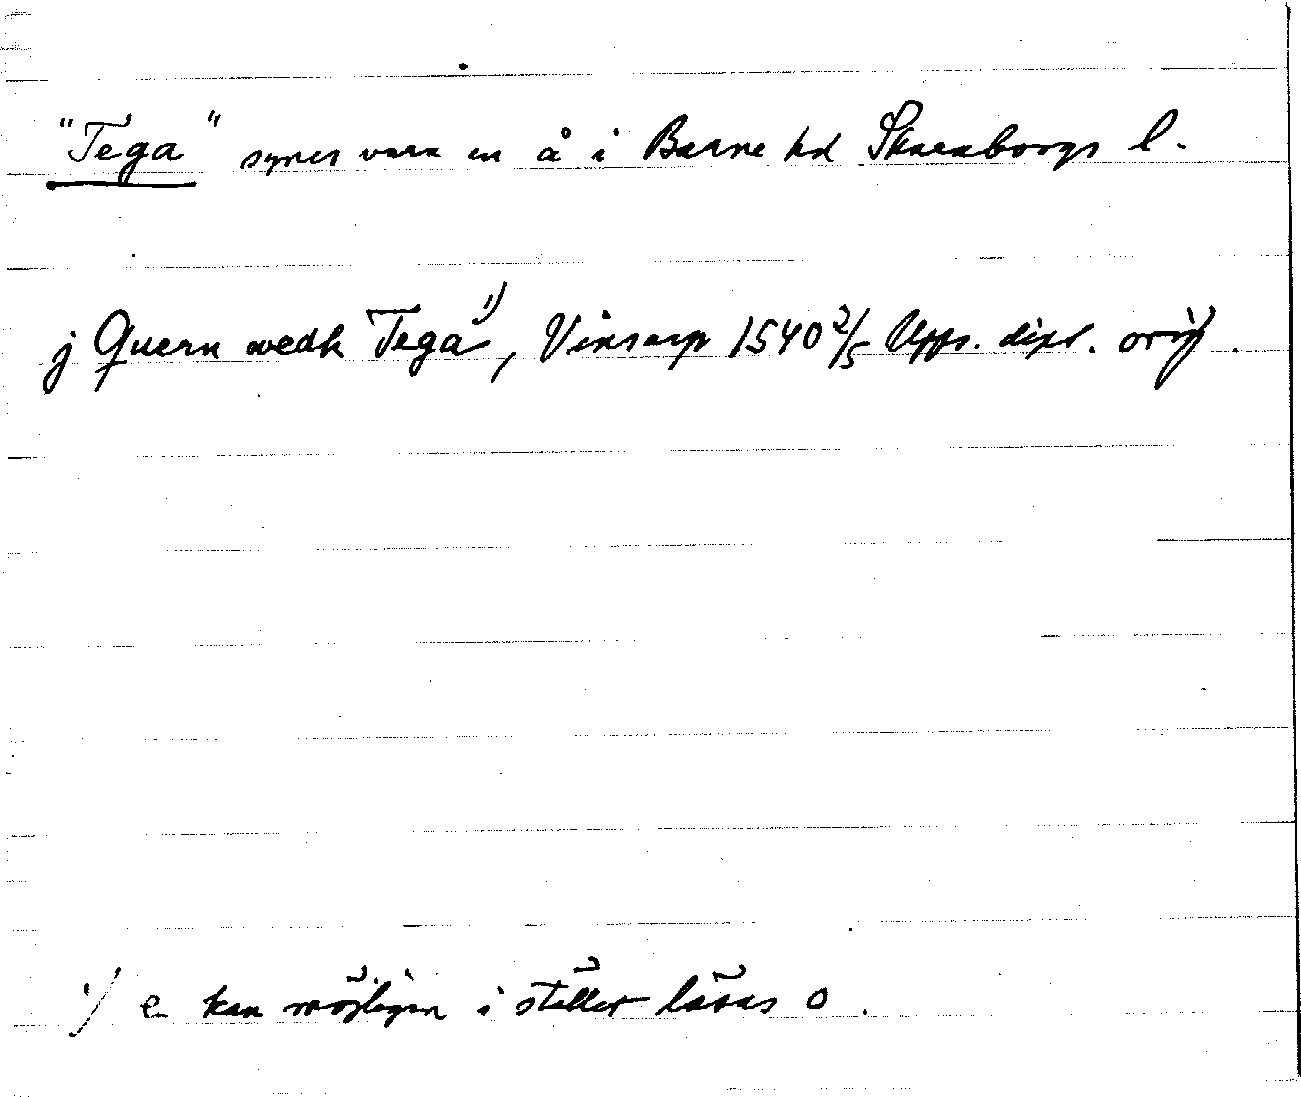 "Tega" synes vara en å i Barne hd Skaraborgs l.
j Quern wedh Tega 1), Vinsarp 1540 2/5 Upps. dipl. orig.
1/ e kan möjligen i stället läsas o.